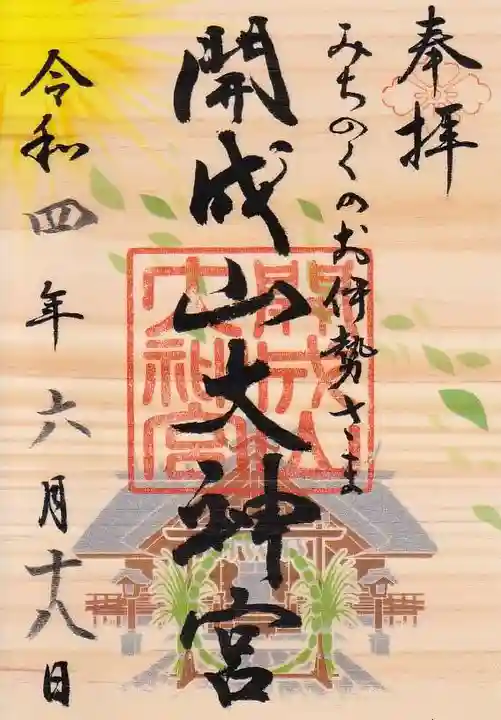 奉拝
みちのくのお伊勢さま
開成山大神宮
開成山大神宮
令和四年六月十八日